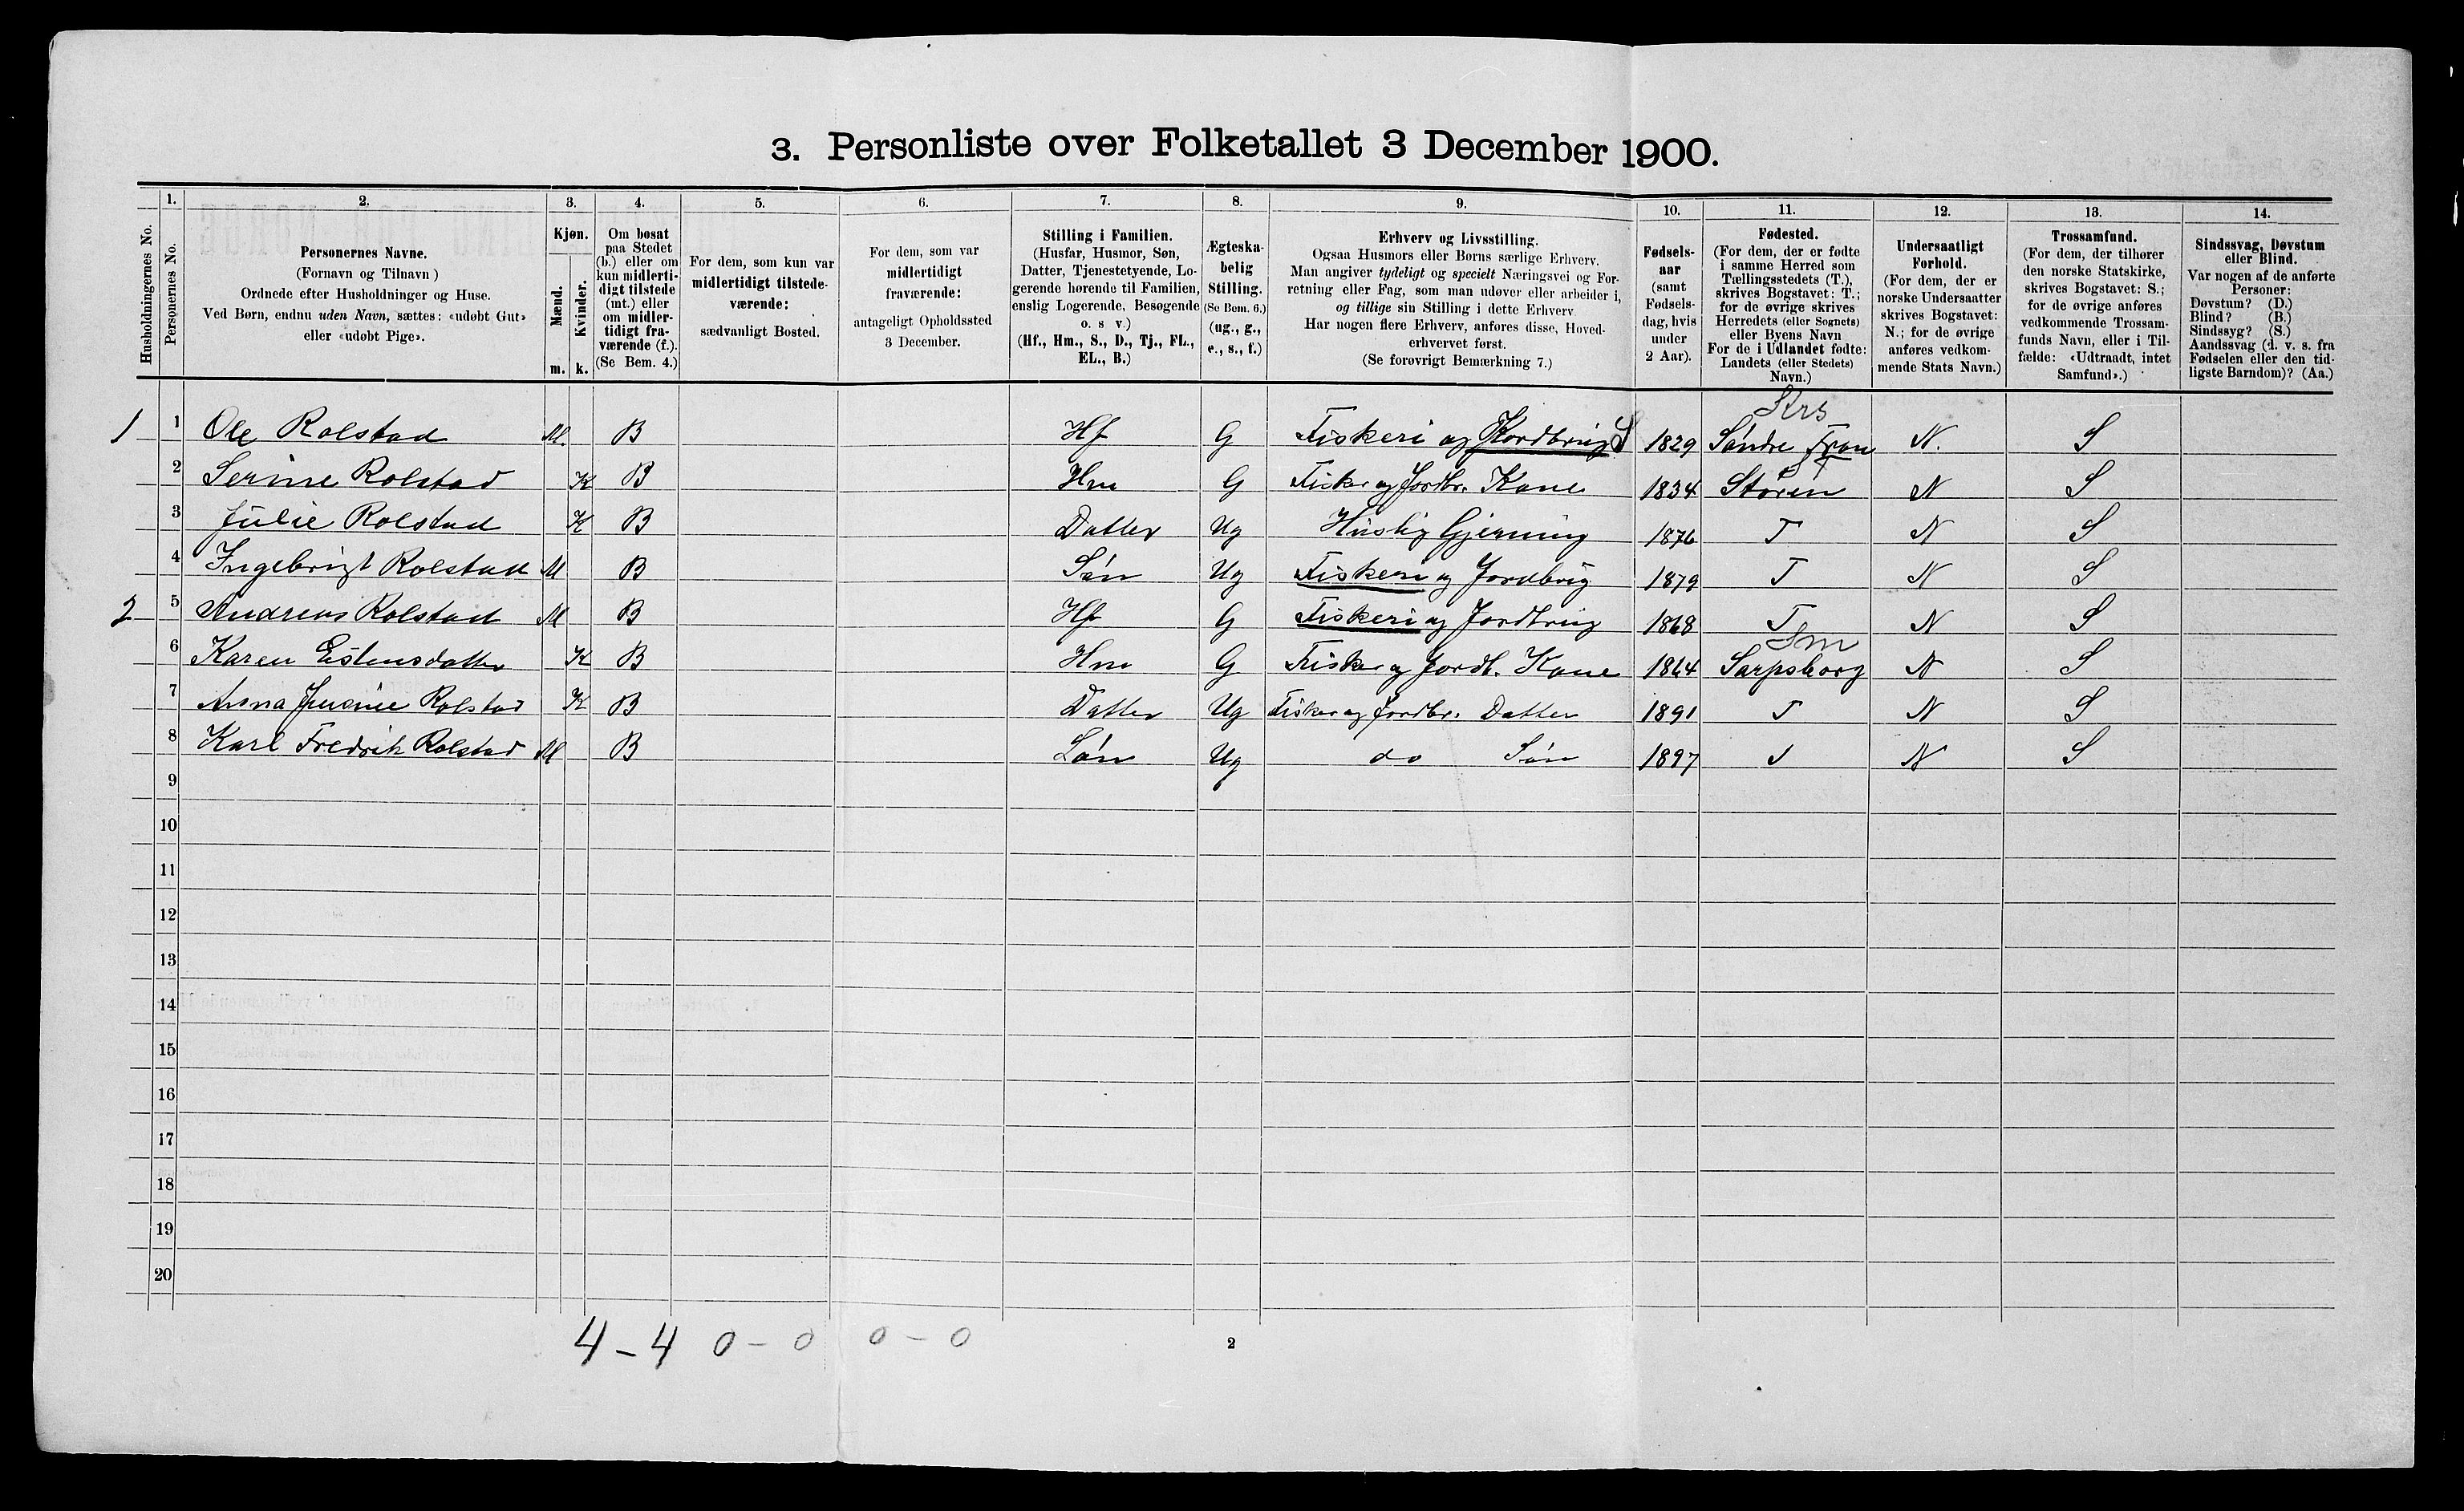 3. Personliste over Folketallet 3 December 1900.
Husholdningernes No.
1.
Personernes No.
2.
Personernes Navne.
(Fornavn og Tilnavn)
Ordnede efter Husholdninger og Huse.
Ved Børn, endnu uden Navn, sættes: «udøbt Gut»
eller «udøbt Pige».
3.
Kjøn.
Mænd.
Kvinder.
m. k.
4.
Om bosat
paa Stedet
(b.) eller om
kun midlerti-
digt tilstede
(mt.) eller
om midler-
tidigt fra-
værende (f.).
(Se Bem. 4.)
5.
For dem, som kun var
midlertidigt tilstede-
værende:
sædvanligt Bosted.
6.
For dem, som var
midlertidigt
fraværende:
antageligt Opholdssted
3 December.
7.
Stilling i Familien.
(Husfar, Husmor, Søn,
Datter, Tjenestetyende, Lo-
gerende hørende til Familien,
enslig Logerende, Besøgende
o. s v.)
(Hf., Hm., S., D., Tj., FL.,
EL., B.)
8.
Ægteska-
belig
Stilling.
(Se Bem. 6.)
(ug., g.,
e., s., f.)
9.
Erhverv og Livsstilling.
Ogsaa Husmors eller Børns særlige Erhverv.
Man angiver tydeligt og specielt Næringsvei og For-
retning eller Fag, som man udøver eller arbeider i,
og tillige sin Stilling i dette Erhverv
Har nogen flere Erhverv, anføres disse, Hoved-
erhvervet først.
(Se forøvrigt Bemærkning 7.)
10.
Fødsels-
aar
(samt
Fødsels-
dag, hvis
under
2 Aar).
11.
Fødested.
(For dem, der er fødte
i samme Herred som
Tællingsstedets (T.),
skrives Bogstavet: T.;
for de øvrige skrives
Herredets (eller Sognets)
eller Byens Navn
For de i Udlandet fødte:
Landets (eller Stedets)
Navn.)
12.
Undersaatligt
Forhold.
(For dem, der er
norske Undersaatter
skrives Bogstavet:
N.; for de øvrige
anføres vedkom-
mende Stats Navn.)
13.
Trossamfund.
(For dem, der tilhører
den norske Statskirke,
skrives Bogstavet: S.;
for de øvrige anføres
vedkommende Trossam-
funds Navn, eller i Til-
fælde: «Udtraadt, intet
Samfund».)
14.
Sindssvag, Døvstum
eller Blind.
Var nogen af de anførte
Personer:
Døvstum? (D.)
Blind? (B.)
Sindssyg? (S.)
Aandssvag (d. v. s. fra
Fødselen eller den tid-
ligste Barndom)? (Aa.)
Krs
1 1 Ole Rolstad M. B Hf G Fiskeri og Jordbrug S 1829 Søndre Fron N. S
St
2 Serine Rolstad K B Hm G Fisker og Jordbr. Kone 1834 Støren N S
3 Julie Rolstad K B Datter Ug Huslig Gjerning 1876 T N S
4 Ingebrigt Rolstad M B Søn Ug Fiskeri og Jordbrug 1879 T N S
2 5 Andreas Rolstad M B Hf G Fiskeri og Jordbrug 1868 T N S
Sm
6 Karen Estensdatter K B Hm G Fisker og Jordb. Kone 1864 Sarpsborg N S
7 Anna Rolstad K B Datter Ug Fisker og Jordbr. Datter 1891 T N S
8 Karl Fredrik Rolstad M B Søn Ug do Søn 1897 T N S
9
10
11
12
13
14
15
16
17
18
19
20
4 – 4 0 – 0 0 – 0
2